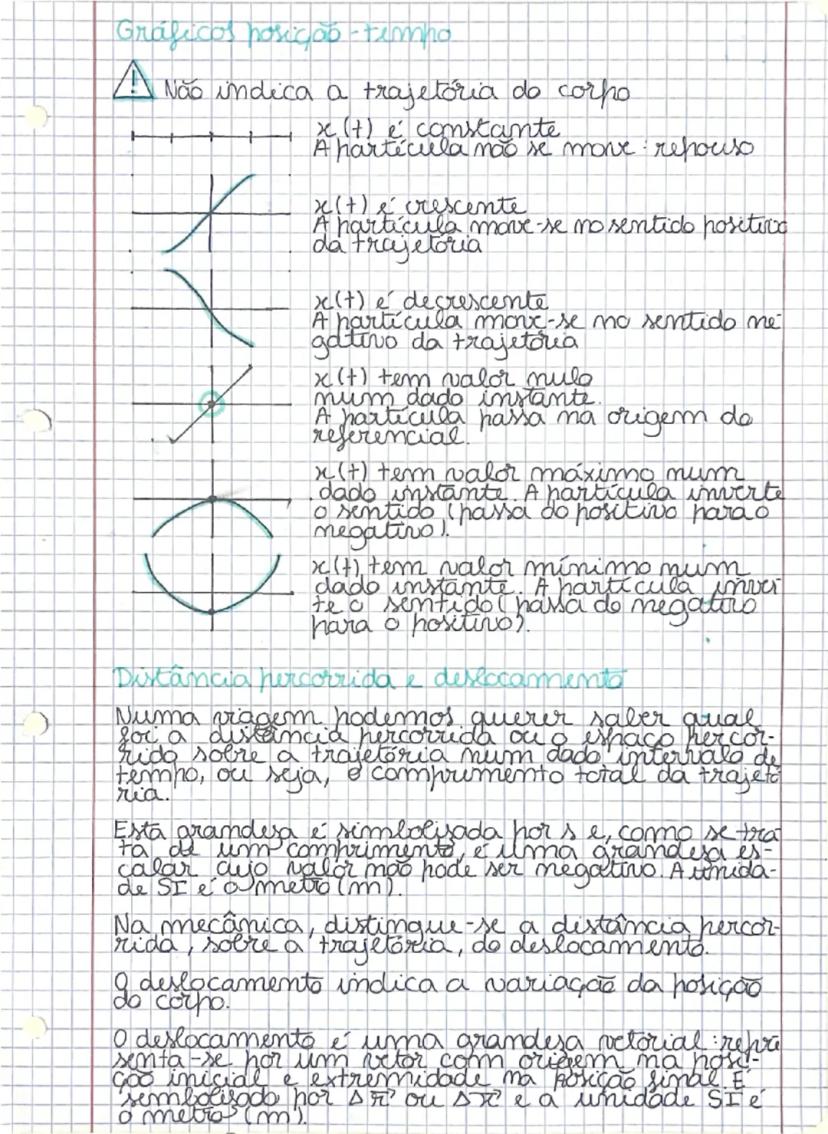 Gráficos posição-tempo
! Não indica a trajetória do corpo
x(t) é constante
A partícula não se move: repouso
x(t) é crescente
A partícula move-se no sentido positivo
da trajetória
x(t) é decrescente
A partícula move-se no sentido ne
gativo da trajetória
x(t) tem valor nulo
num dado instante.
A partícula passa na origem do
referencial.
x(t) tem valor máximo num
dado instante. A partícula inverte
o sentido (passa do positivo para o
negativo).
x(t) tem valor mínimo num
dado instante. A partícula inver
te o sentido (passa do negativo
para o positivo).
Distância percorrida e deslocamento
Numa viagem podemos querer saber qual
foi a distância percorrida ou o espaço percor-
rido sobre a trajetória num dado intervalo de
tempo, ou seja, o comprimento total da trajetó
ria.
Esta grandesa é simbolisada por s e, como se tra
ta de um comprimento, é uma grandesa es-
calar cujo valor não pode ser negativo. A unida-
de SI é o metro (m).
Na mecânica, distingue-se a distância percor-
rida, sobre a trajetória, do deslocamento.
O deslocamento indica a variação da posição
do corpo.
O deslocamento é uma grandesa vetorial: repre
senta-se por um vetor com origem na posi-
ção inicial e extremidade na posição final. É
sembolisado por Δr⃗ ou Δx⃗ e a unidade SI é
o metro (m).